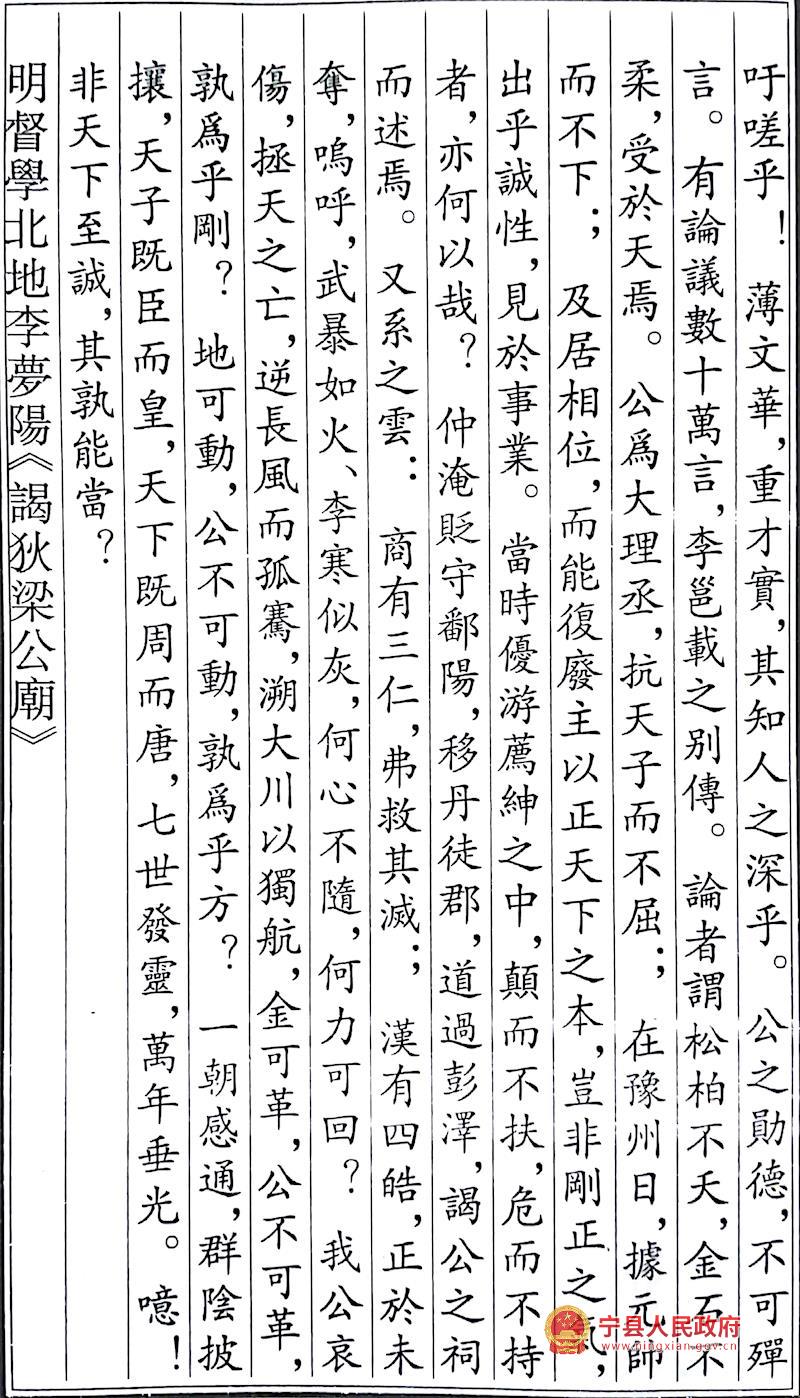 吁嗟乎！　薄文華，重才實，其知人之深乎。　公之勛德，不可殫
言。有論議數十萬言，李邕載之别傳。　論者謂松柏不夭，金石不
柔，受於天焉。　公爲大理丞，抗天子而不屈；　在豫州日，據元帥
而不下；　及居相位，而能復廢主以正天下之本，豈非剛正之氣，
出乎誠性，見於事業。　當時優游薦紳之中，顛而不扶，危而不持
者，亦何以哉？　仲淹貶守鄱陽，移丹徒郡，道過彭澤，謁公之祠
而述焉。　又系之雲：　商有三仁，弗救其滅；　漢有四皓，正於未
奪，嗚呼，武暴如火、李寒似灰，何心不隨，何力可回？　我公哀
傷，拯天之亡，逆長風而孤騫，溯大川以獨航，金可革，公不可革，
孰爲乎剛？　地可動，公不可動，孰爲乎方？　一朝感通，群陰披
攘，天子既臣而皇，天下既周而唐，七世發靈，萬年垂光。　噫！
非天下至誠，其孰能當？
明督學北地李夢陽《謁狄梁公廟》
宁县人民政府
www.ningxian.gov.cn